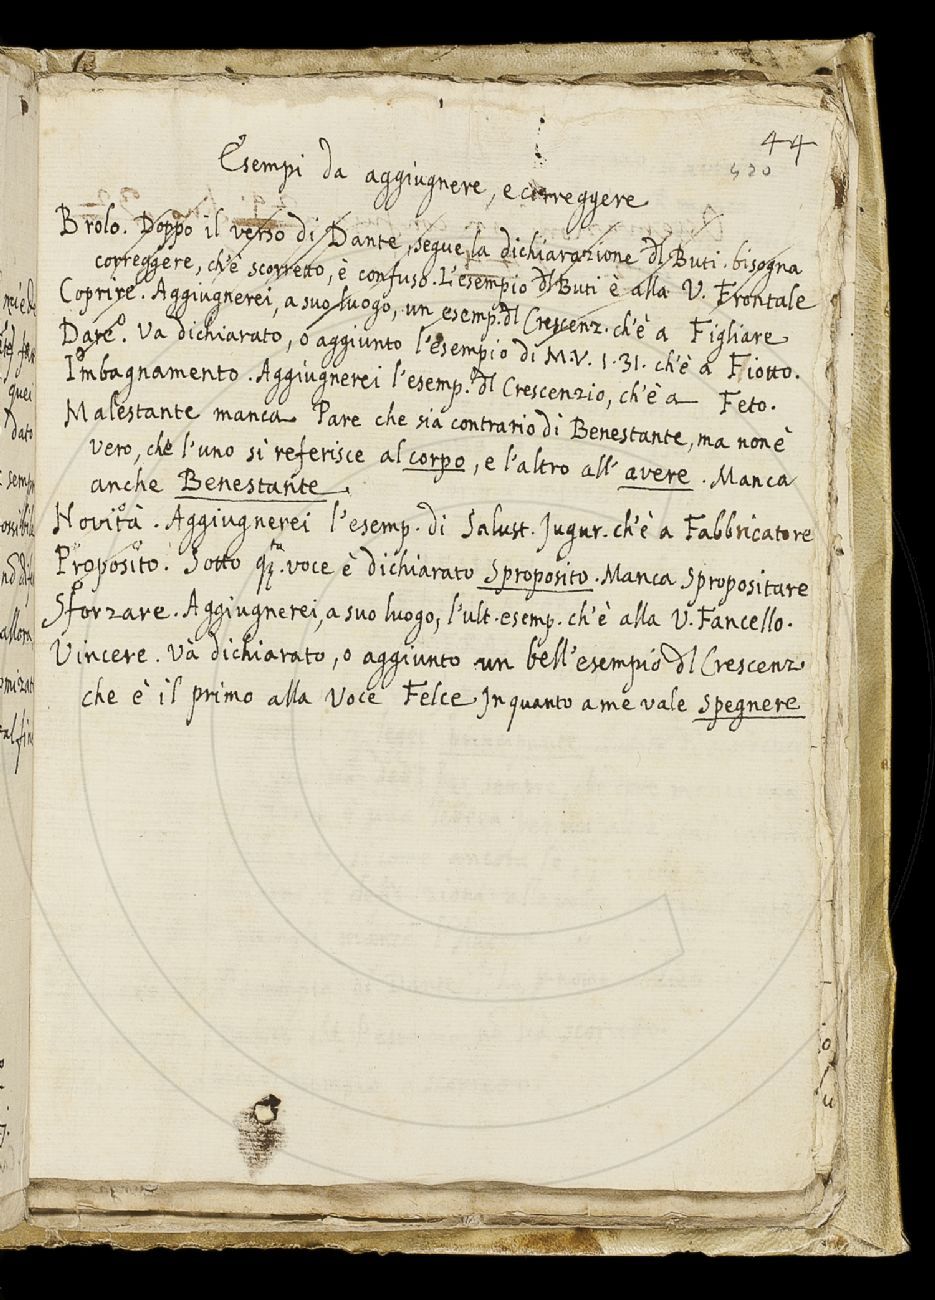 44
420
Esempi da aggiugnere, e correggere
Brolo. Doppo il verso di Dante, segue la dichiarazione dl Buti. bisogna
correggere, ch'è scorretto, è confuso. L'esempio dl Buti è alla V. Frontale
Coprire. Aggiugnerei, a suo luogo, un esemp. dl Crescenz. ch'è a Figliare
Dare. Va dichiarato, o aggiunto l'esempio di M.V. 1.31. ch'è a Fiotto.
Imbagnamento. Aggiugnerei l'esemp. dl Crescenzio, ch'è a Feto.
Malestante manca Pare che sia contrario di Benestante, ma non è
vero, che l'uno si referisce al corpo, e l'altro all' avere. Manca
anche Benestante.
Novità. Aggiugnerei l'esemp. di Salust. Jugur. ch'è a Fabbricatore
Proposito. Sotto qsta. voce è dichiarato Sproposito. Manca Spropositare
Sforzare. Aggiugnerei, a suo luogo, l'ult. esemp. ch'è alla V. Fancello.
Vincere. Và dichiarato, o aggiunto un bell'esempio dl Crescenz.
che è il primo alla Voce Felce Inquanto a me vale spegnere